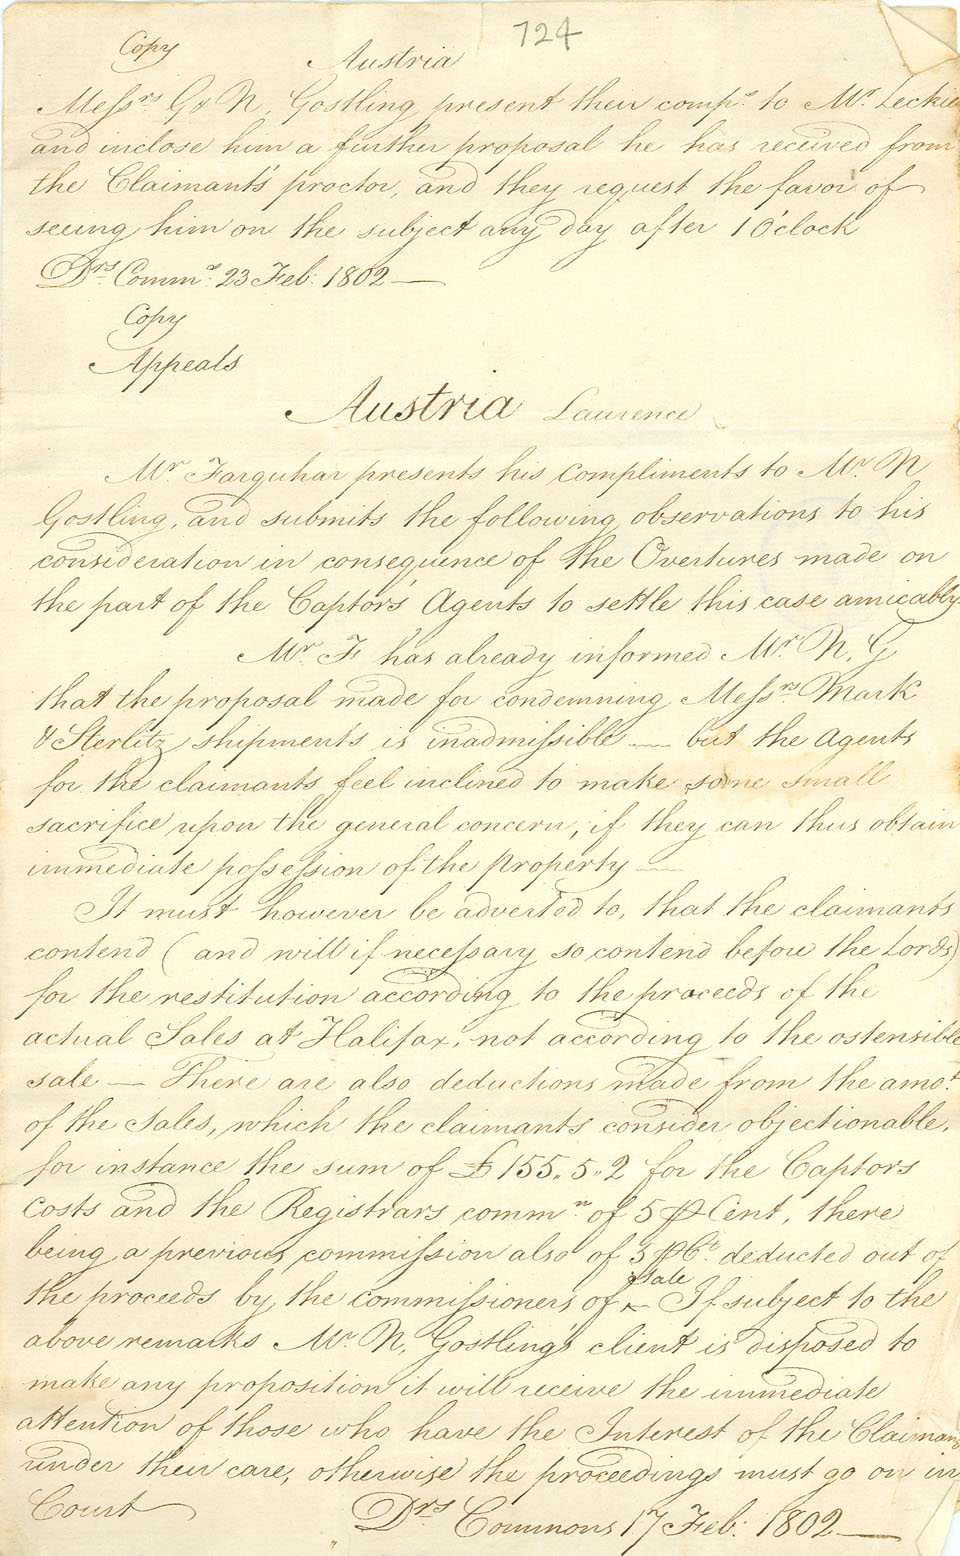 724
Copy
Austria
Messrs G & N. Gostling present their compts. to Mr. Leckie
and inclose him a further proposal he has received from
the Claimant's proctor, and they request the favor of
seeing him on the subject any day after 1 O'clock
Drs. Comms. 23 Feb: 1802 —
Copy
Appeals
Austria Laurence
Mr. Farquhar presents his compliments to Mr. N
Gostling, and submits the following observations to his
consideration in consequence of the Overtures made on
the part of the Captor's Agents to settle this case amicably.
Mr. F has already informed Mr. N. G
that the proposal made for condemning Messrs. Mark
& Sterlitz shipments is inadmissible — but the Agents
for the claimants feel inclined to make some small
sacrifice upon the general concern, if they can thus obtain
immediate possession of the property —
It must however be adverted to, that the claimants
contend (and will if necessary so contend before the Lords)
for the restitution according to the proceeds of the
actual Sales at Halifax, not according to the ostensible
sale — There are also deductions made from the amot.
of the Sales, which the claimants consider objectionable,
for instance the sum of £155.. 5.. 2 for the Captors
costs and the Registrars commn. of 5 ₱ Cent, there
being a previous commission also of 5 ₱ Ct. deducted out of
the proceeds by the commissioners of Sale — If subject to the
above remarks Mr. N. Gostling's client is disposed to
make any proposition it will receive the immediate
attention of those who have the Interest of the Claimants
under their care, otherwise the proceedings must go on in
Court
Drs. Commons 17 Feb: 1802 —